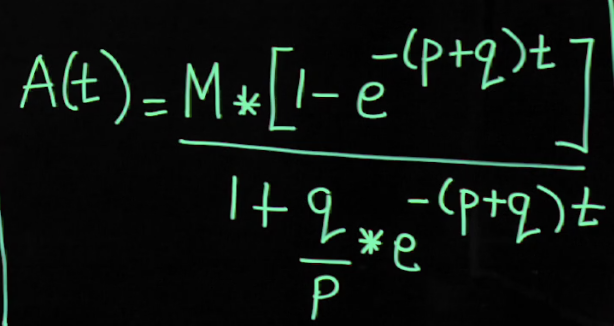 A(t) = M * [1 - e^{-(p+q)t}]
1 + q/p * e^{-(p+q)t}